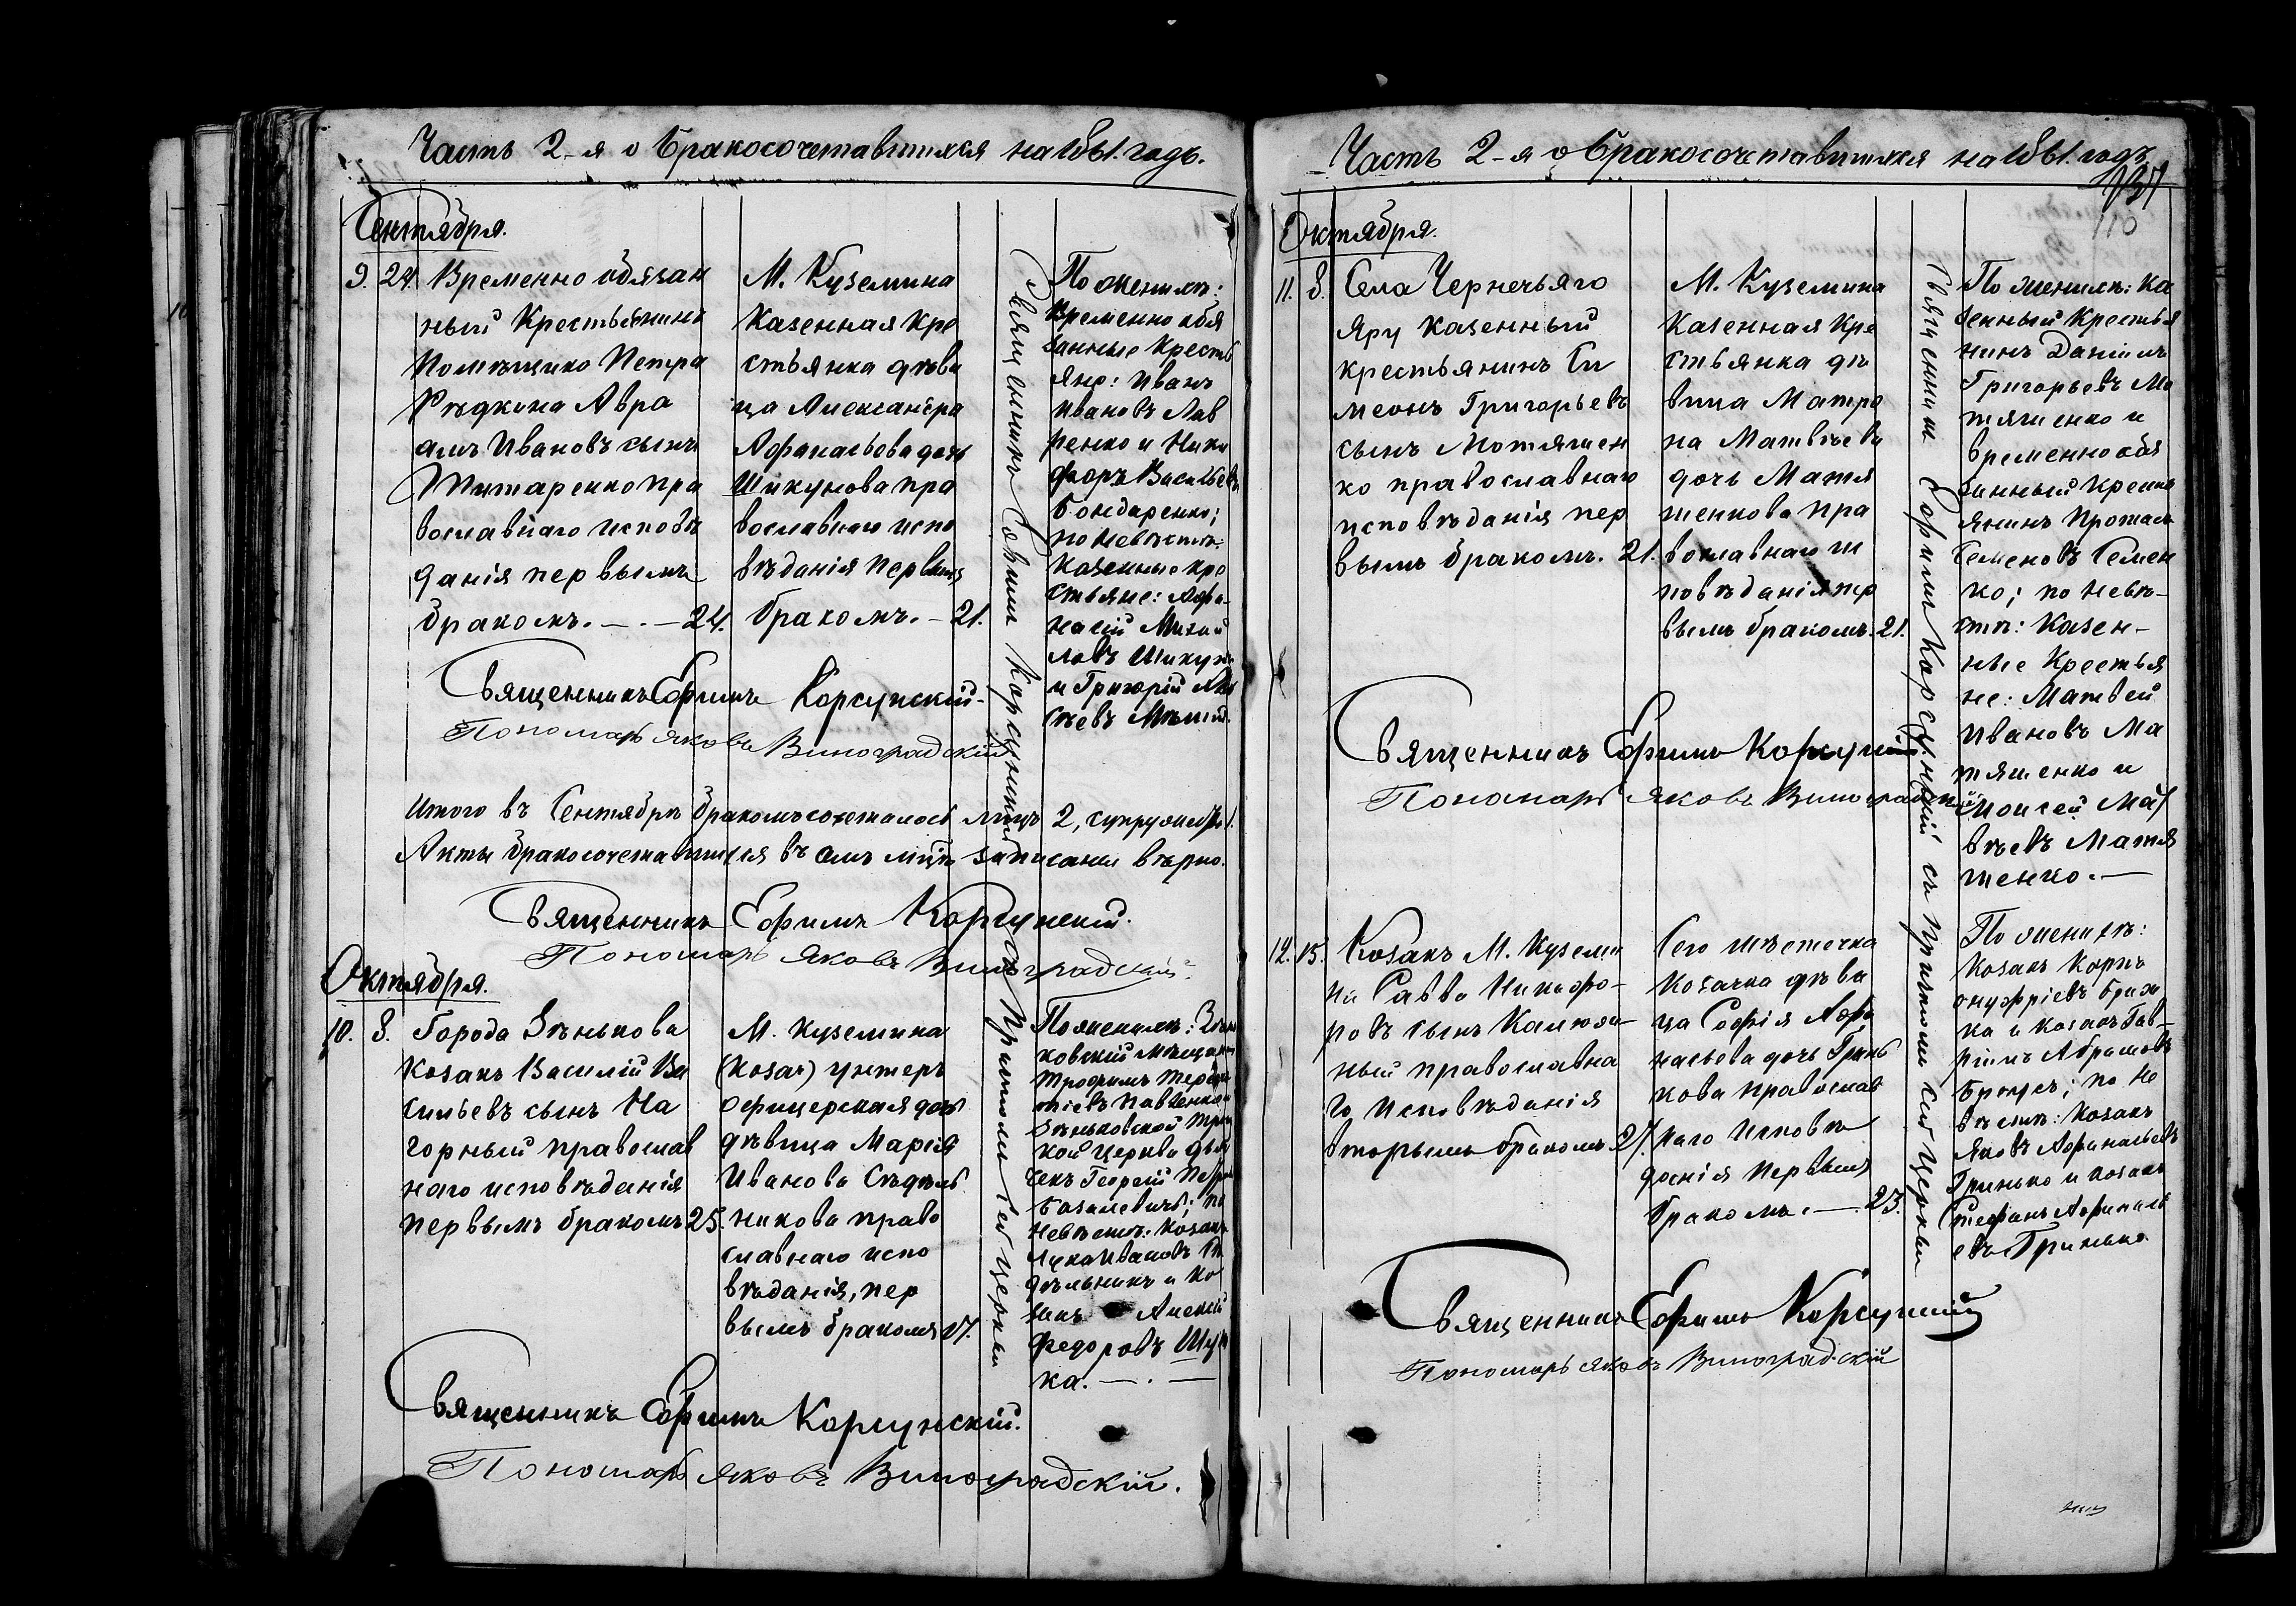 Часть 2-я о бракосочетавшихся на 1861. годъ.
Сентября.
9. 24. Временно обязан
ный Крестьянинъ
Помѣщика Петра
Рѣдкина Авра
амъ Ивановъ сынъ
Титаренко пра
вославнаго исповѣ
данія первымъ
бракомъ. — . — 24.
М. Куземина
Казенная Кре
стьянка дѣви
ца Александра
Афанасьева дочь
Шикунова пра
вославнаго испо
вѣданія первымъ
бракомъ. — 21.
Священникъ Ефимъ Корсунскій съ причтомъ сей церкви
По женихѣ:
Временно обя
занные Кресть
яне: Иванъ
Ивановъ Лав
ренко и Ники
форъ Васильевъ
Бондаренко;
по невѣстѣ:
Казенные кре
стьяне: Афа-
насій Михай
ловъ Шикунъ
и Григорій
Священникъ Ефимъ Корсунскій.
Пономарь Яковъ Виноградскій
Итого въ Сентябрѣ бракомъ сочеталось лицъ 2, супружествъ 1.
Акты бракосочетавшихся въ семъ мцѣ записаны вѣрно.
Священникъ Ефимъ Корсунскій.
Пономарь Яковъ Виноградскій.
Октября.
10. 8. Города Зѣнькова
Козакъ Василій Ва
сильевъ сынъ На
горный православ
наго исповѣданія
первымъ бракомъ 25.
М. Куземина
(Козач) унтеръ
офицерская дочь
дѣвица Марія
Иванова Сѣдѣль
никова право
славнаго испо
вѣданія, пер
вымъ бракомъ 17.
По женихѣ: Зѣнь
ковскій мѣщанинъ
Трофимъ Терен
тіевъ Павленко и
Зѣньковской Трои
кой церкви дья
чекъ Георгій Петровъ
Базилевичъ; по
невѣстѣ: козакъ
Лука Ивановъ Сѣ
дѣльникъ и Ко
закъ Алексѣй
Федоровъ Щу
ка. — . —
Священникъ Ефимъ Корсунскій.
Пономарь Яковъ Виноградскій.
Часть 2-я о бракосочетавшихся на 1861. годъ
137
110
Октября.
11. 8. Села Чернечьяго
Яру казенный
крестьянинъ Си
меонъ Григорьевъ
сынъ Мотяшен
ко православнаго
исповѣданія пер
вымъ бракомъ. 21.
М. Куземина
Казенная Кре
стьянка дѣ
вица Матро
на Матвѣева
дочь Матя
шенкова пра
вославнаго ис
повѣданія пер
вымъ бракомъ. 21.
Священникъ Ефимъ Корсунскій съ причтомъ сей церкви
По женихѣ: Ка
зенный Крестья
нинъ Даніилъ
Григорьевъ Мо
тяшенко и
временно обя
занный Кресть
янинъ
Семеновъ Семен
ко; по невѣ-
стѣ: Казен-
ные Крестья
не: Матвей
Ивановъ Ма
тяшенко и
Моисей Мат
вѣевъ Матя
шенко. —
Священникъ Ефимъ Корсунскій
Пономарь Яковъ Виноградскій
12. 15. Козакъ М. Куземи
на Савва Никифо-
ровъ сынъ Калюж-
ный православна
го исповѣданія
вторымъ бракомъ 27.
Сего мѣстечка
Козачка дѣви
ца Софія Афа
насьева дочь Гринь
кова православ
наго исповѣ
данія первымъ
бракомъ. — 23.
По женихѣ:
Козакъ Корнъ
Онуфріевъ
ка и козакъ Гав-
ріилъ Абрамовъ
по не
вѣстѣ: Козакъ
Яковъ Афанасьевъ
Гринько и козакъ
Стефанъ Афанась
евъ Гринько
Священникъ Ефимъ Корсунскій
Пономарь Яковъ Виноградскій